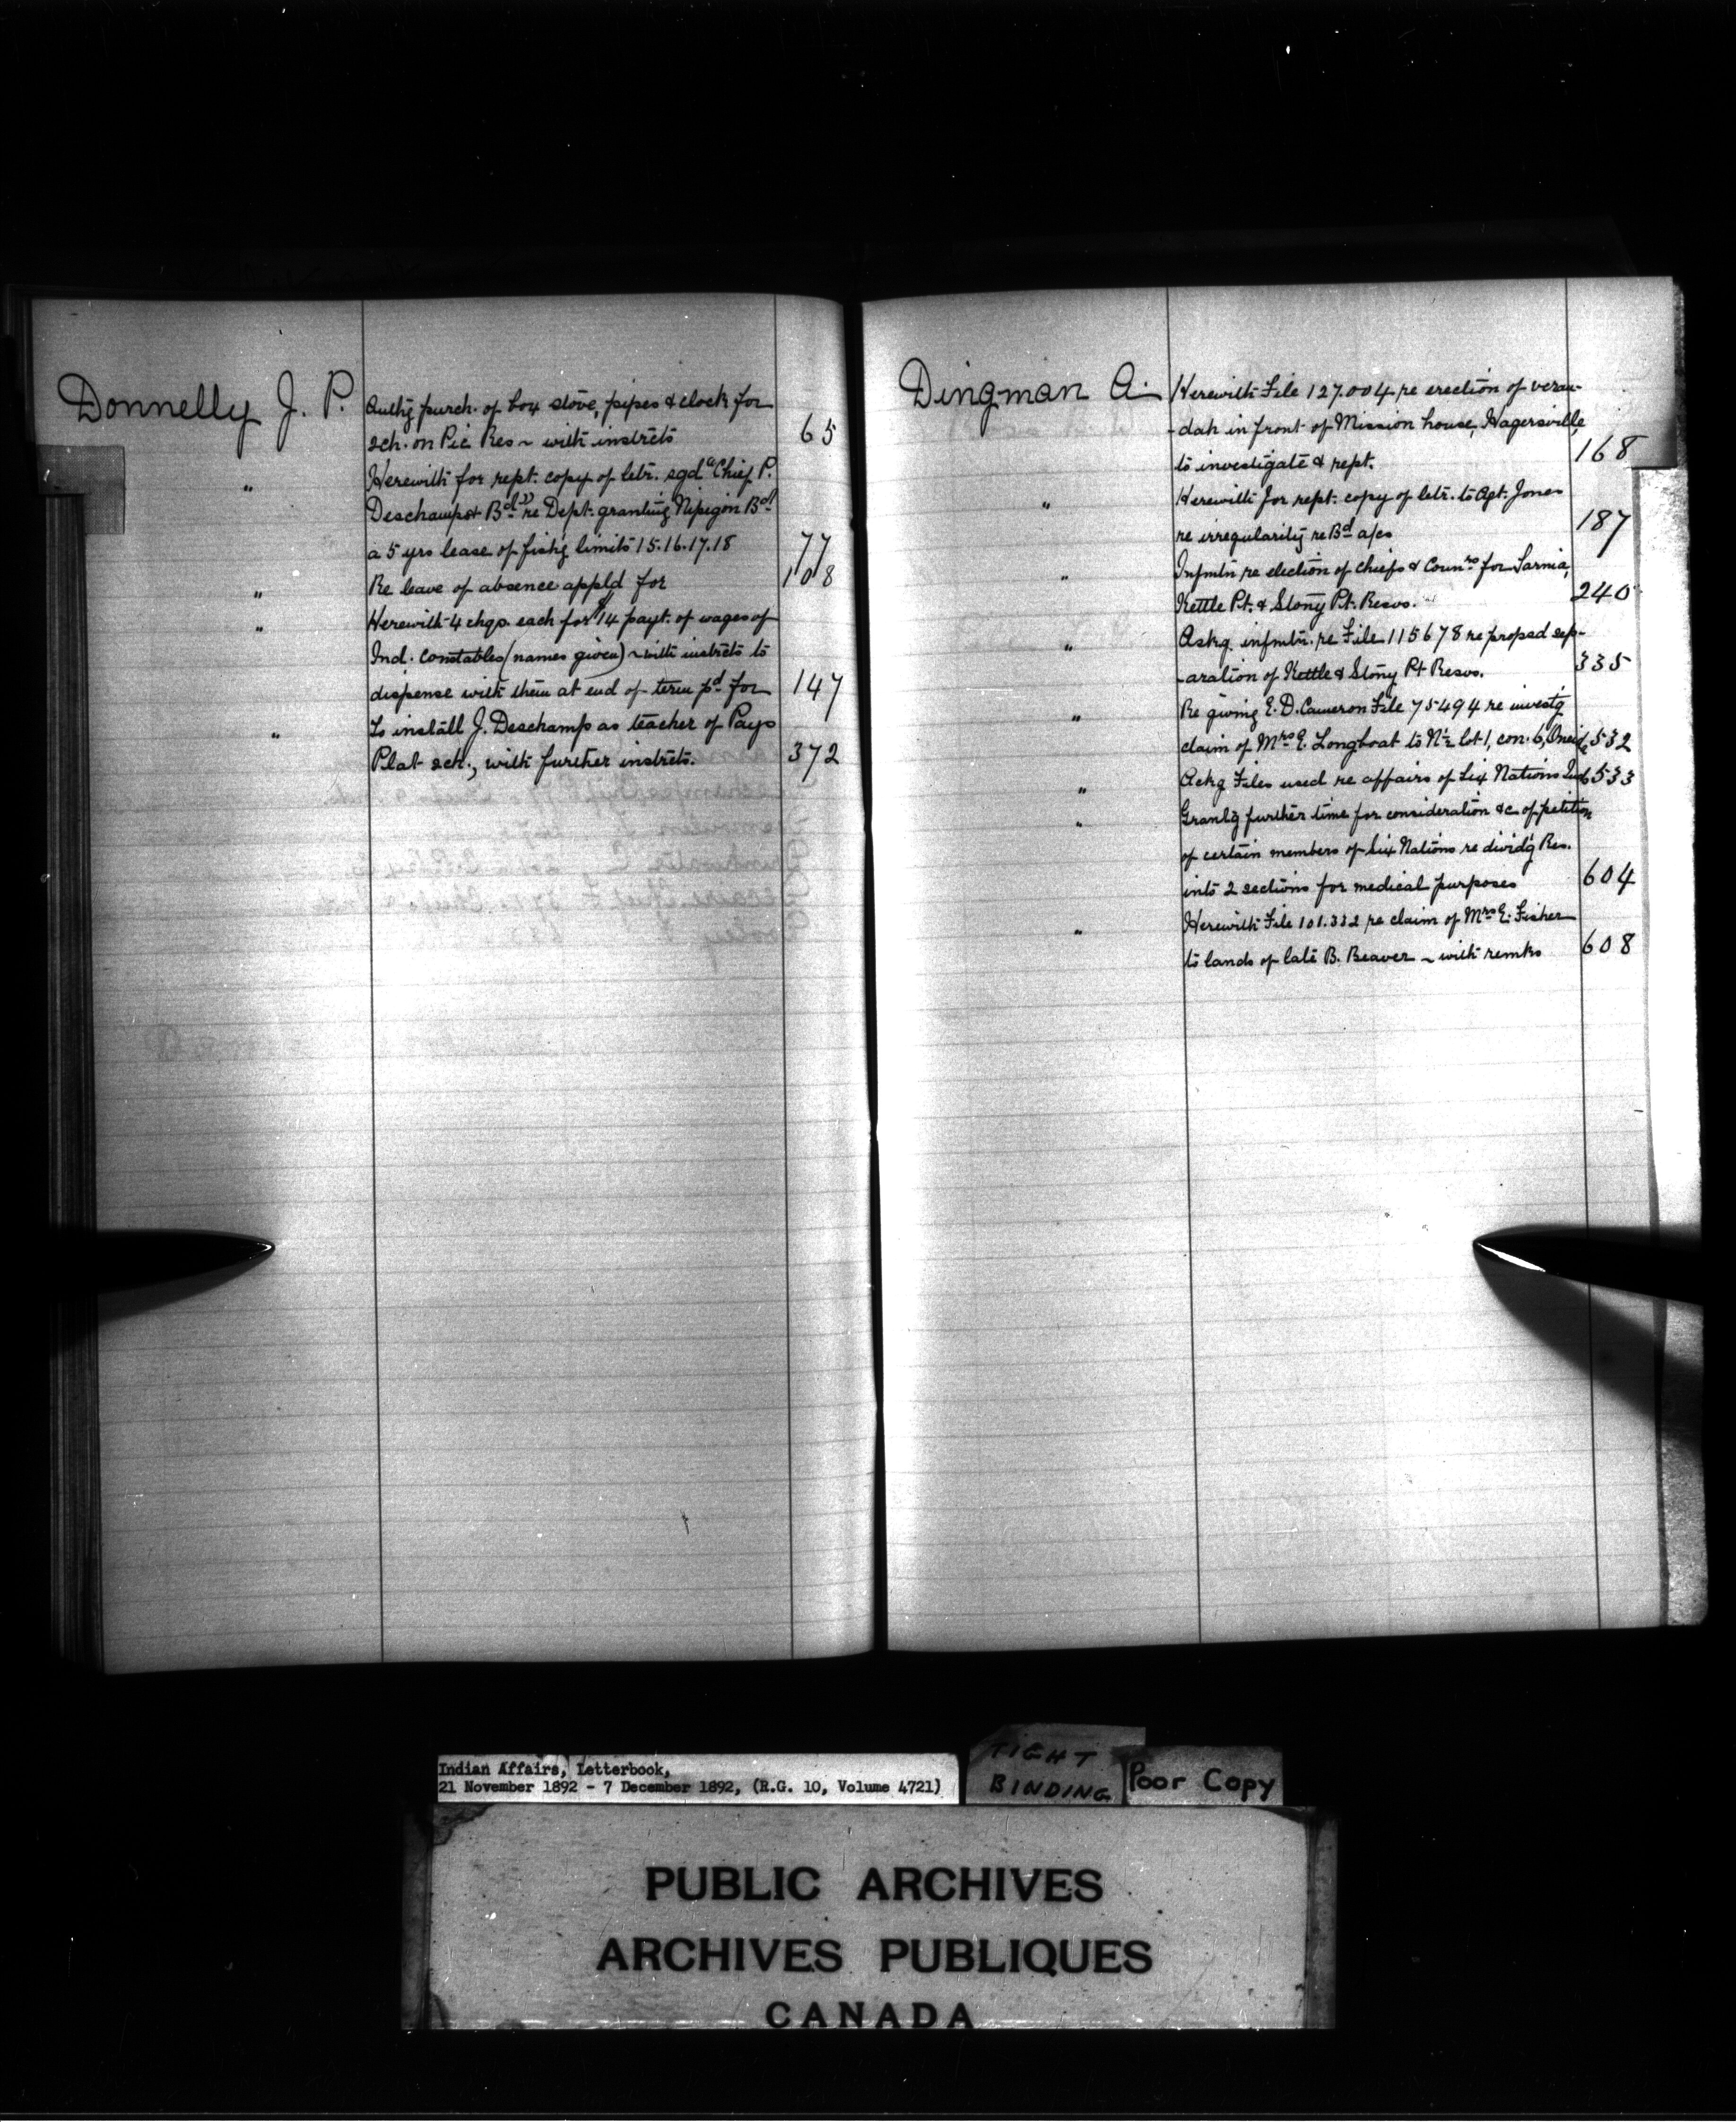 Donnelly J. P. Authg purch. of box stove, pipes & clock for
sch. on Pic Res ~ with instrcts 65
" Herewith for rept. copy of letr. sgd "Chief P.
Deschamps & Bd" re Dept. granting Nipigon Bd
a 5 yrs lease of fishg limits 15.16.17.18 77
" Re leave of absence appld for 108
" Herewith 4 chqs. each for $14 payt. of wages of
Ind. Constables (names given) ~ with instrcts to
dispense with them at end of term pd for 147
" To install J. Deschamp as teacher of Pays
Plat sch., with further instrcts. 372
Dingman A. Herewith File 127.004 re erection of veran-
-dah in front of Mission house, Hagersville,
to investigate & rept. 168
" Herewith for rept. copy of letr. to Agt. Jones
re irregularity re Bd a/cs 187
" Infmtn re election of Chiefs & Counrs for Sarnia,
Kettle Pt. & Stony Pt. Resvs. 240
" Askg. infmtn. re File 115678 re propsd sep-
-aration of Kettle & Stony Pt Resvs. 335
" Re giving E. D. Cameron File 75494 re investg
claim of Mrs E. Longboat to N½ lot 1, con. 6, Oneida 532
" Ackg Files used re affairs of Six Nations Inds 533
" Grantg further time for consideration &c of petition
of certain members of Six Nations re dividg Res.
into 2 sections for medical purposes 604
" Herewith File 101.332 re claim of Mrs E. Fisher
to lands of late B. Beaver ~ with remks 608
Indian Affairs, Letterbook,
21 November 1892 - 7 December 1892, (R.G. 10, Volume 4721)
TIGHT
BINDING
Poor Copy
PUBLIC ARCHIVES
ARCHIVES PUBLIQUES
CANADA